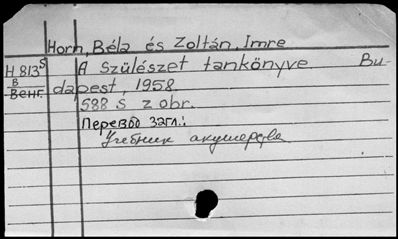 Horn, Béla és Zoltán, Imre
H 813⁵ A Szülészet tankönyve. Bu-
В
Венг. dapest, 1958.
588 s z obr.
Перевод загл.:
Учебник акушерства